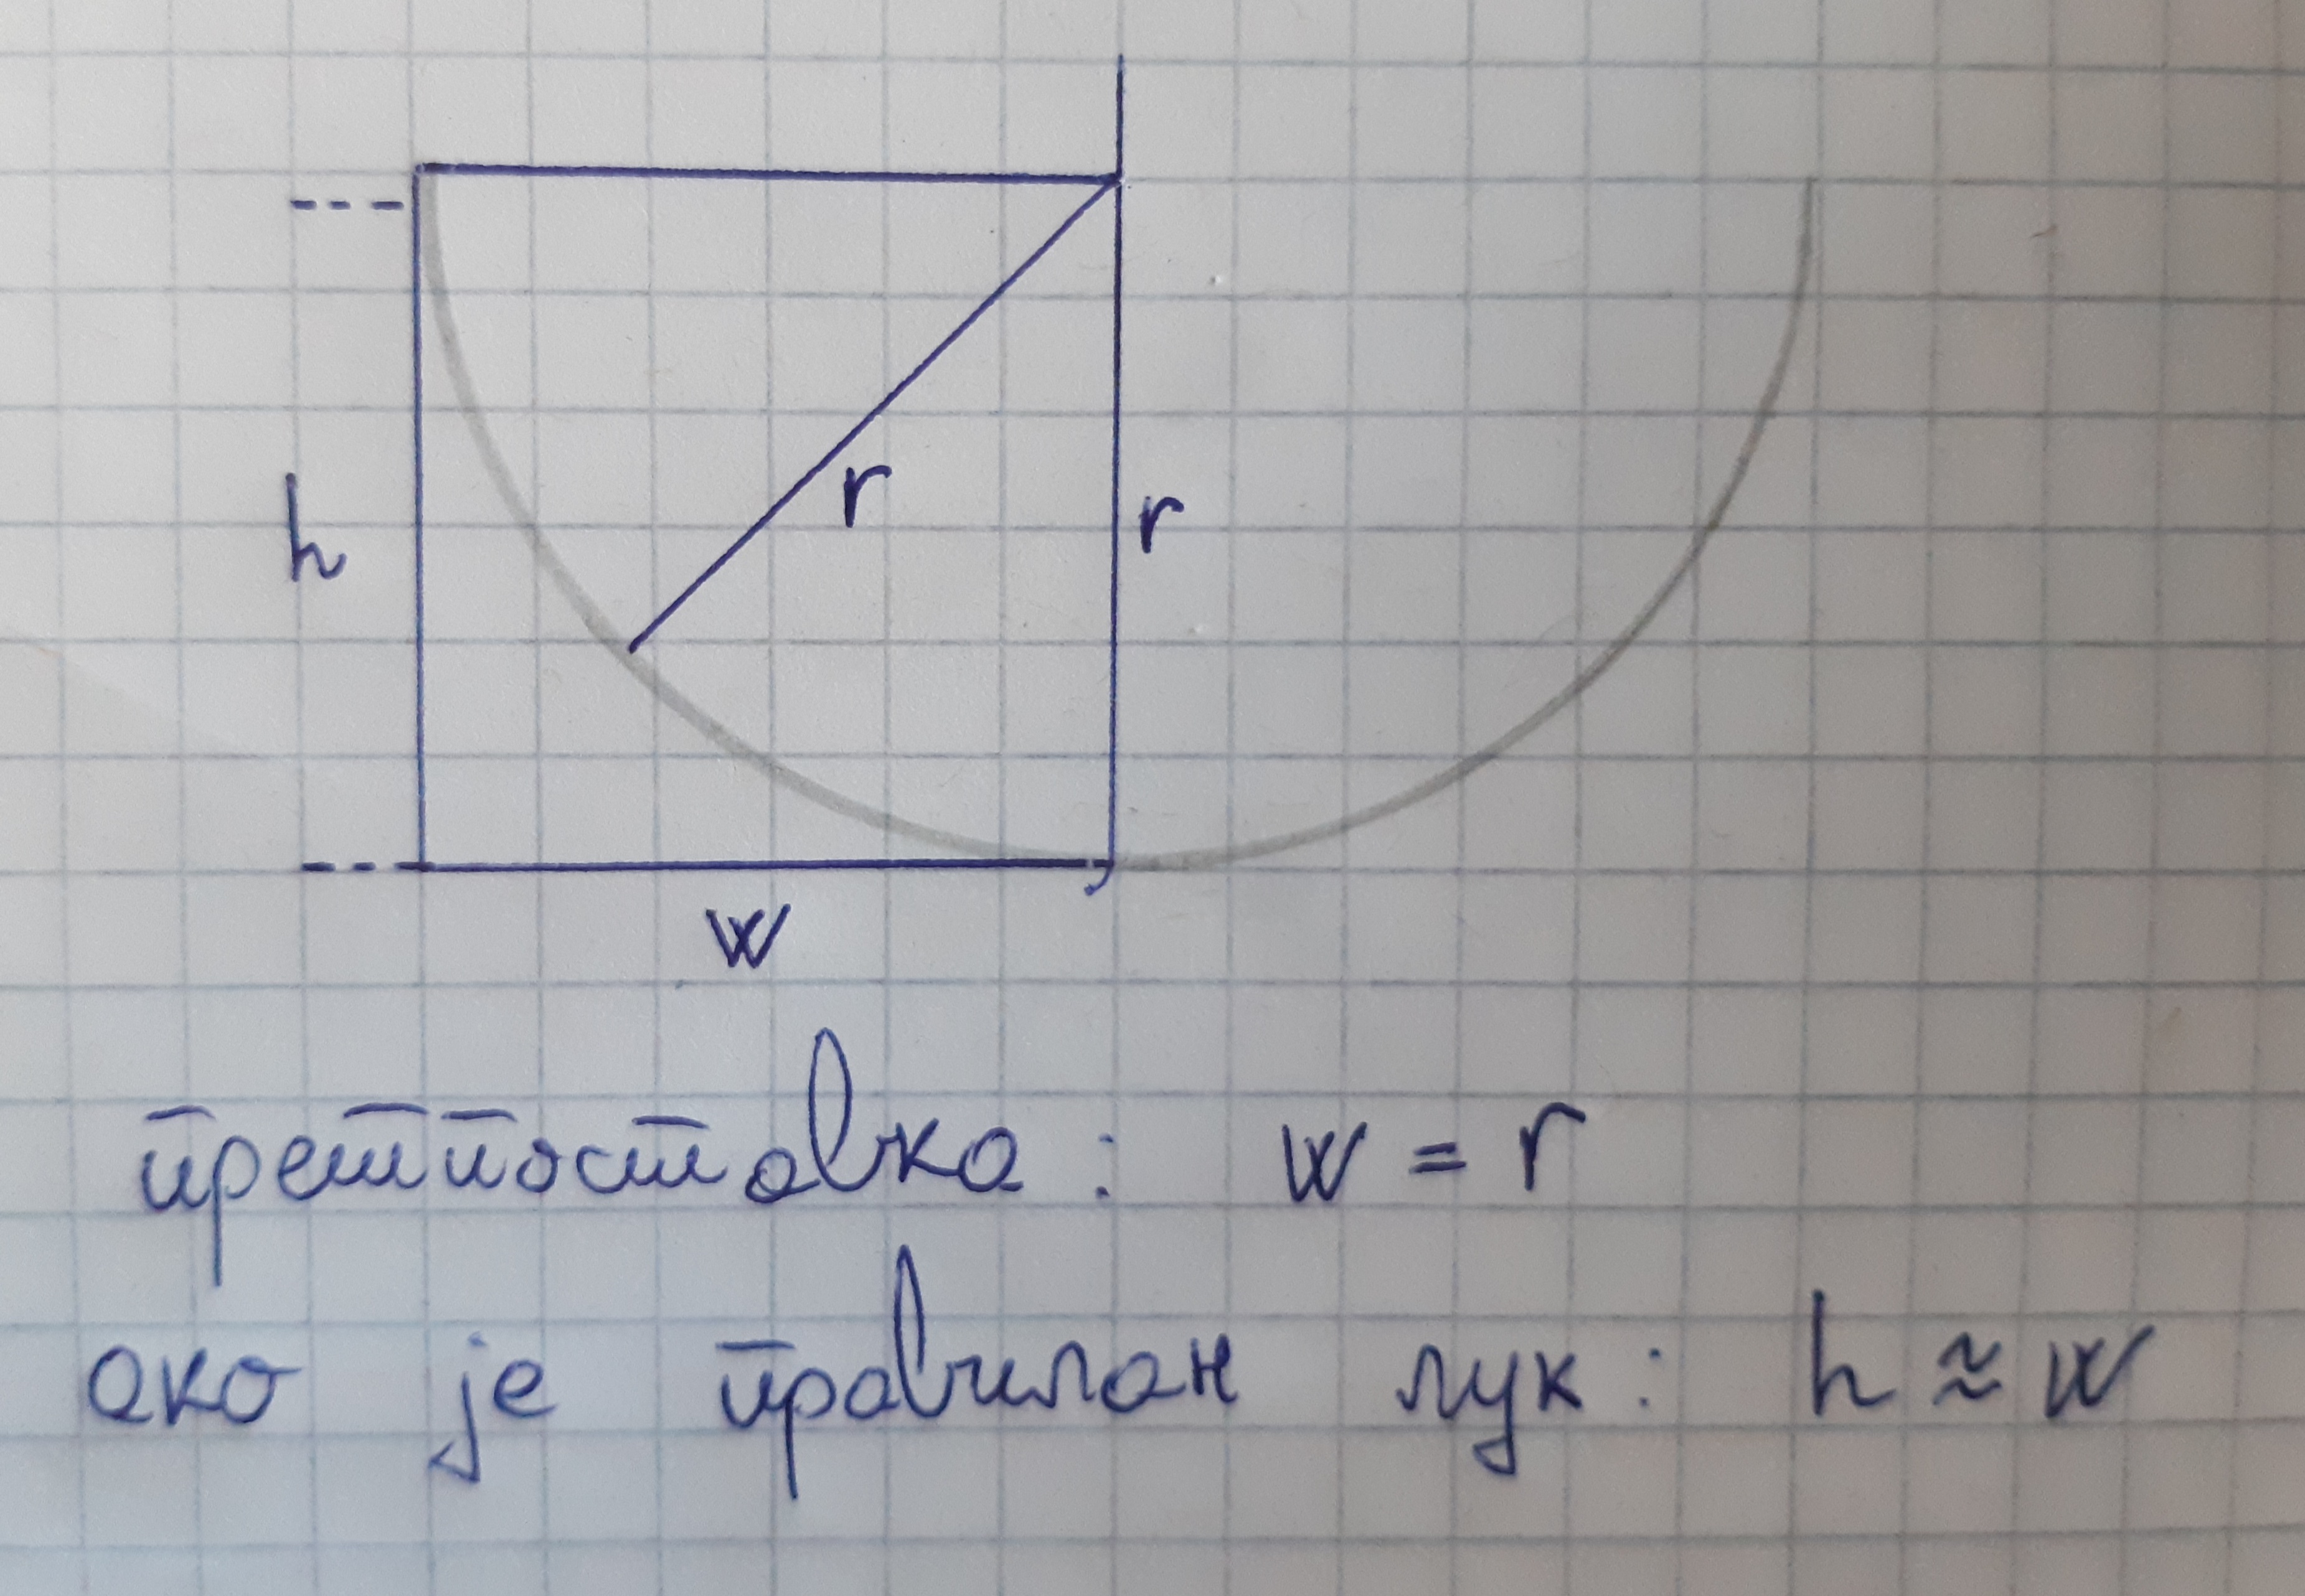 h
r
r
w
претпоставка: w = r
ако је правилан лук: h ≈ w